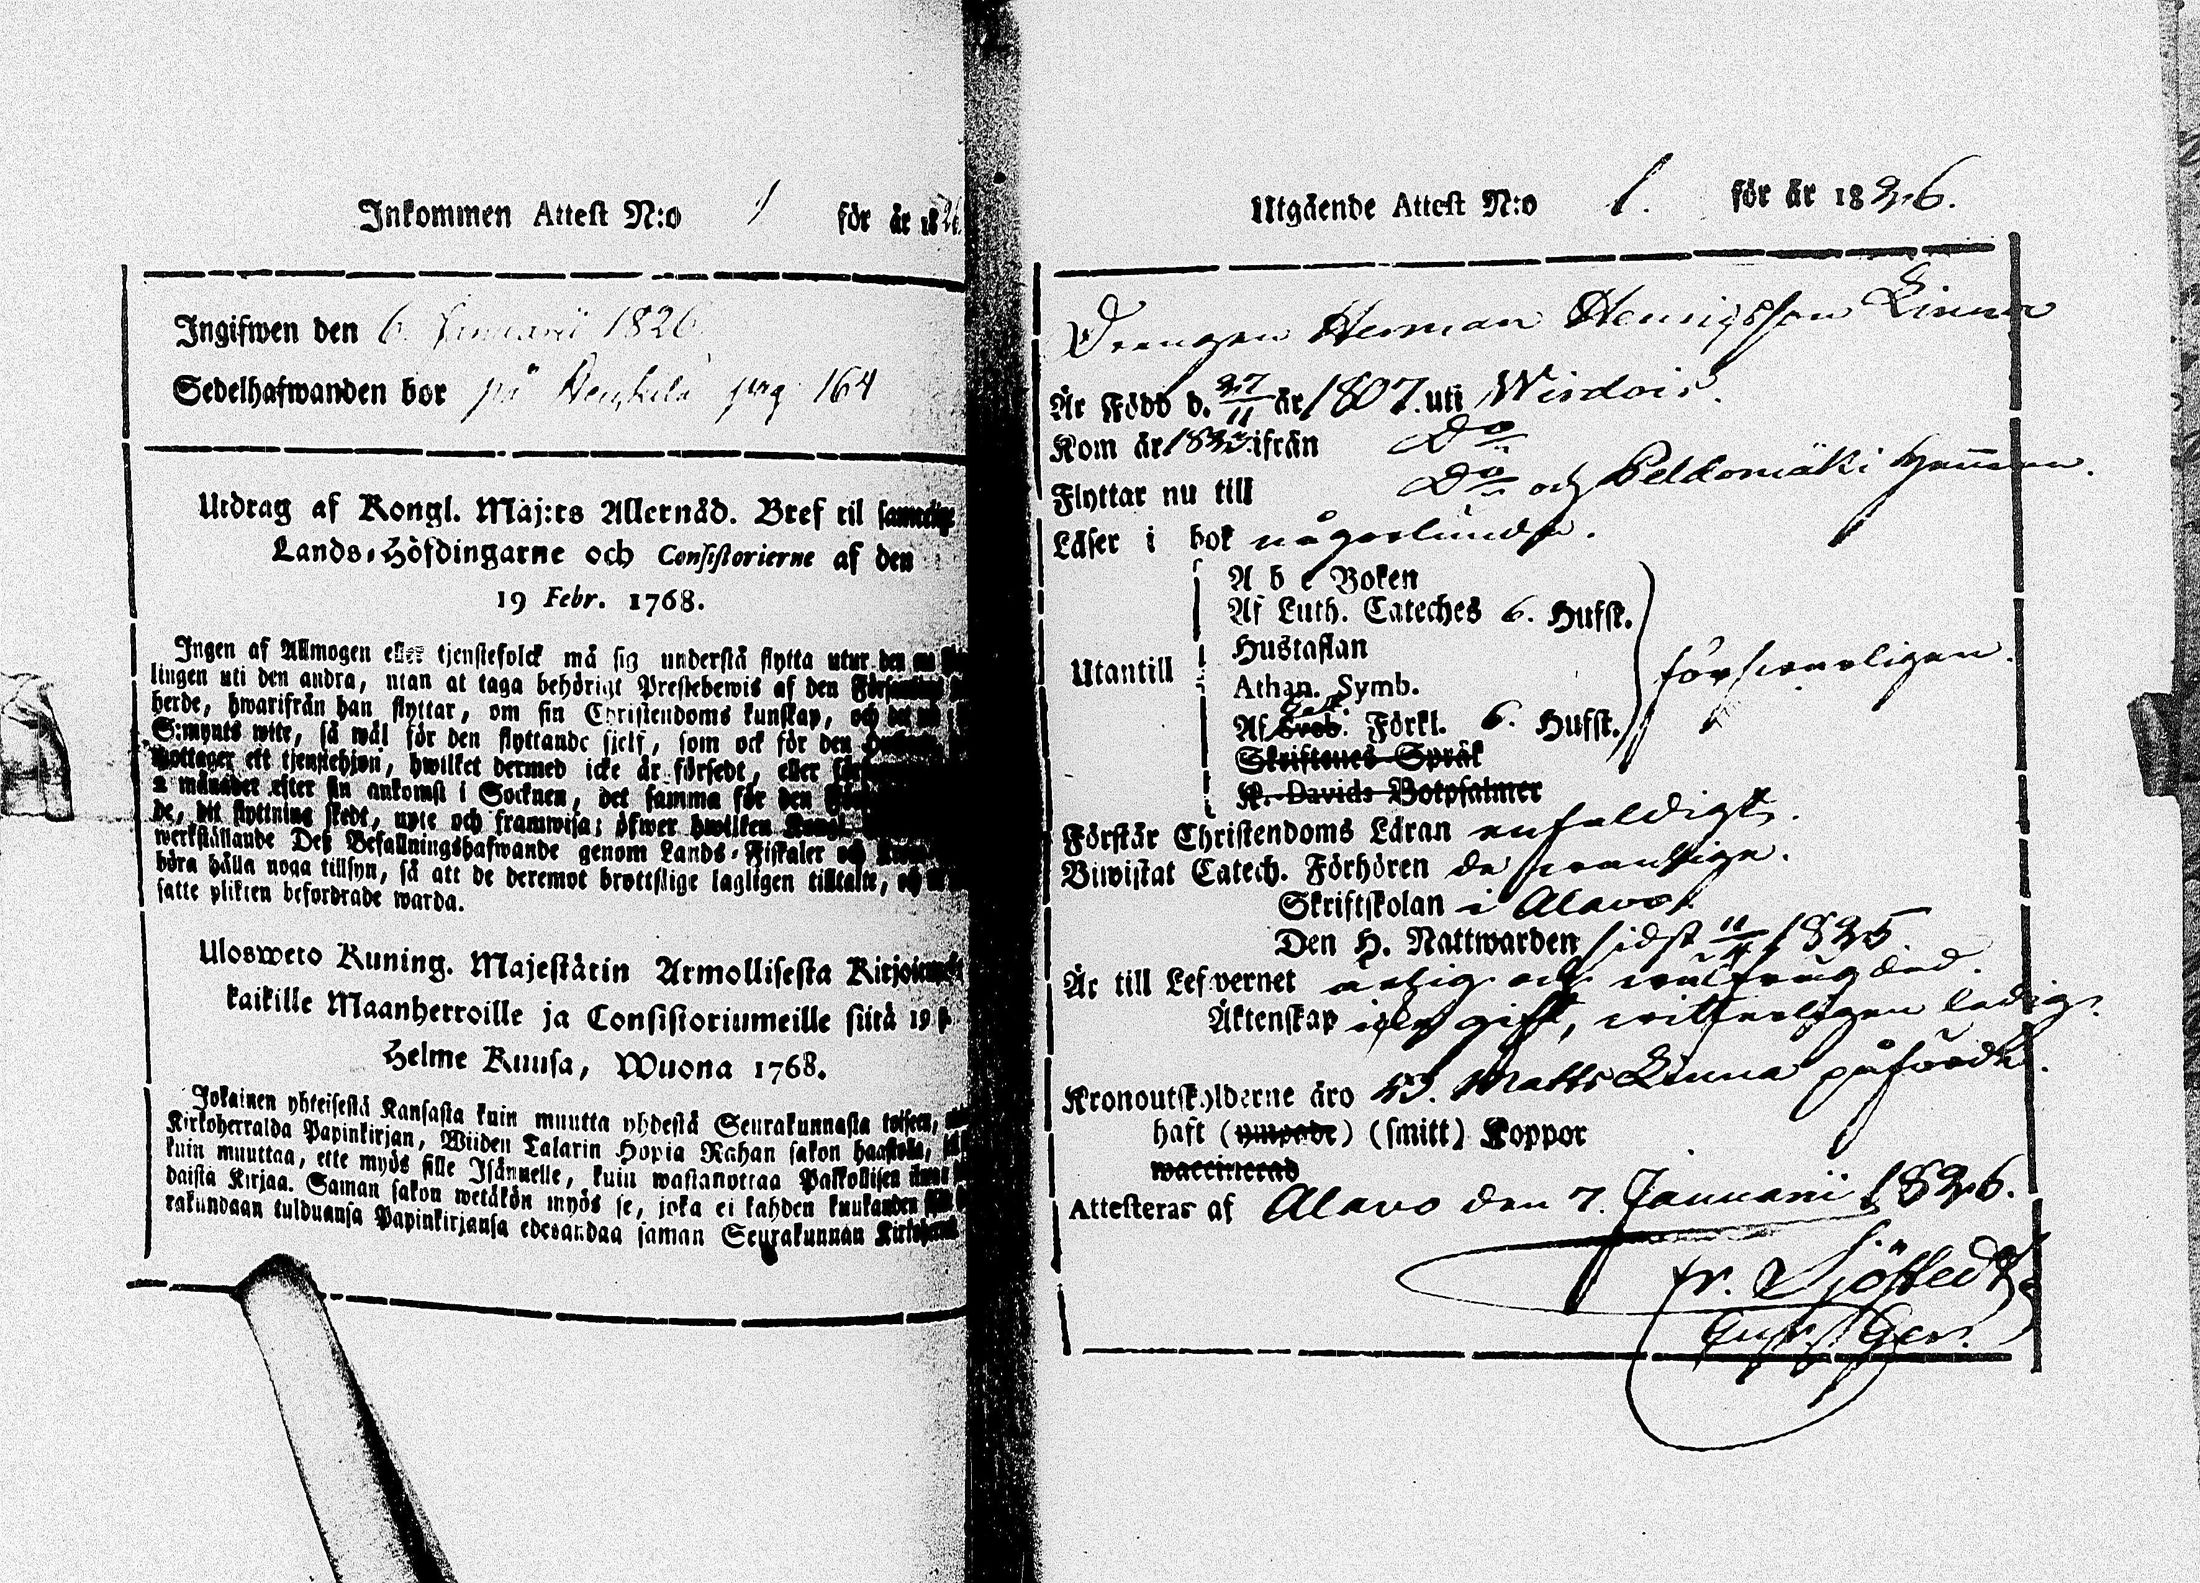 Inkommen Attest N:o 1 för år 182
Ingifwen den 6 Januarii 1826
Sedelhafwanden bor på pag 164
Utdrag af Kongl. Maj:ts Allernåd. Bref til
Lands-Höfdingarne och Consistorierne af den
19 Febr. 1768.
Ingen af Allmogen eller tjenstefolck må sig understå flytta utur den
lingen uti den andra, utan at taga behörigt Prestebewis af den
herde, hwarifrån han flyttar, om sin Christendoms kunskap, och
S:mynts wite, så wäl för den flyttande sjelf, som ock för den
mottager ett tjenstehjon, hwilket dermed icke är försedt, eller
2 månader efter sin ankomst i Socknen, det samma för den
de, dit flyttning skedt, upte och framwisa; öfwer hwilken Kongl.
werkställande Deß Befallningshafwande genom Lands-Fiskaler och
böra hålla noga tillsyn, så att de deremot brottslige lagligen tilltalte, och
satte plikten befordrade warda.
Ulosweto Kuning. Majestätin Armollisesta
kaikille Maanherroille ja Consistoriumeille siitä 19 p
Helme Kuusa, Wuona 1768.
Jokainen yhteisestä Kansasta kuin muutta yhdestä Seurakunnasta toiseen,
Kirkoherralda Papinkirjan, Wiiden Talarin Hopia Rahan sakon haastolla,
kuin muuttaa, ette myös sille Isännelle, kuin wastanottaa Palkollisen ilman
daista Kirjaa. Saman sakon wetäkön myös se, joka ei kahden kuukauden
rakundaan tulduansa Papinkirjansa edesandaa saman Seurakunnan
Utgående Attest N:o 1. för år 1826.
Drengen Herman Henrigsson Linna
Är Född d. 27/11 år 1807. uti Wirdois.
Kom år 1823 ifrån Do
Flyttar nu till Do och Peldomäki hemman.
Läser i bok någorlunda.
Utantill
A b c Boken
Af Luth. Cateches 6. Hufst.
Hustaflan
Athan. Symb.
Af Sveb. Förkl. 6. Hufst.
försvarligen.
Skriftenes Språk
K. Davids Botpsalmer
Förstår Christendoms Läran enfaldigt.
Biwistat Catech. Förhören de wanliga.
Skriftskolan i Alavo.
Den H. Nattwarden sidst 11/ 1825.
Är till Lefvernet ärlig och wälfrägdad.
Äktenskap icke gift, witterligen ledig.
Kronoutskylderne äro Matts Linna påförde.
haft (ympade) (smitt) Koppor
waccinerad
Attesteras af Alavo den 7. Januarii 1826.
Fr. Sjöstedt